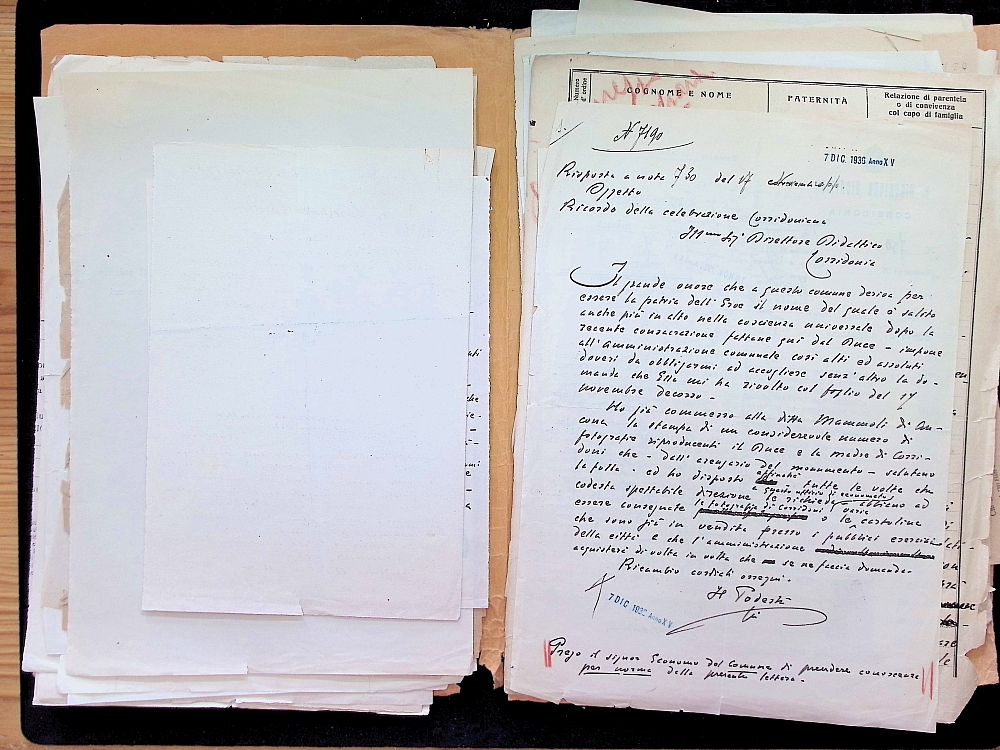 Numero d'ordine
COGNOME E NOME
PATERNITÀ
Relazione di parentela
o di convivenza
col capo di famiglia
N 7190
7 DIC. 1936 Anno XV
Risposta a nota 730 del 17 Novembre
Oggetto
Ricordo della celebrazione Corridoniana
Ill.mo Sig. Direttore Didattico
Corridonia
Il grande onore che a questo comune deriva per
essere la patria dell'Eroe il nome del quale è salito
anche più in alto nella coscienza universale dopo la
recente consacrazione fattane qui dal Duce - impone
all'Amministrazione comunale così alti ed assoluti
doveri da obbligarmi ad accogliere senz'altro la do-
manda che Ella mi ha rivolto col foglio del 17
novembre decorso -
Ho già commesso alla ditta Mammoli di An-
cona la stampa di un considerevole numero di
fotografie riproducenti il Duce e la madre di Corri-
doni che - dall'arengario del monumento - salutano
la folla - ed ho disposto affinché tutte le volte che
codesta spettabile direzione le richieda abbiano ad
a questo ufficio di economato
essere consegnate le fotografie di Corridoni o le cartoline
varie
che sono già in vendita presso i pubblici esercizi
della città e che l'amministrazione
acquisterà di volta in volta che se ne faccia domanda.
Ricambio cordiali ossequi.
Il Podestà
7 DIC. 1936 Anno XV
Prego il signor Economo del Comune di prendere conoscenza
per norma della presente lettera.